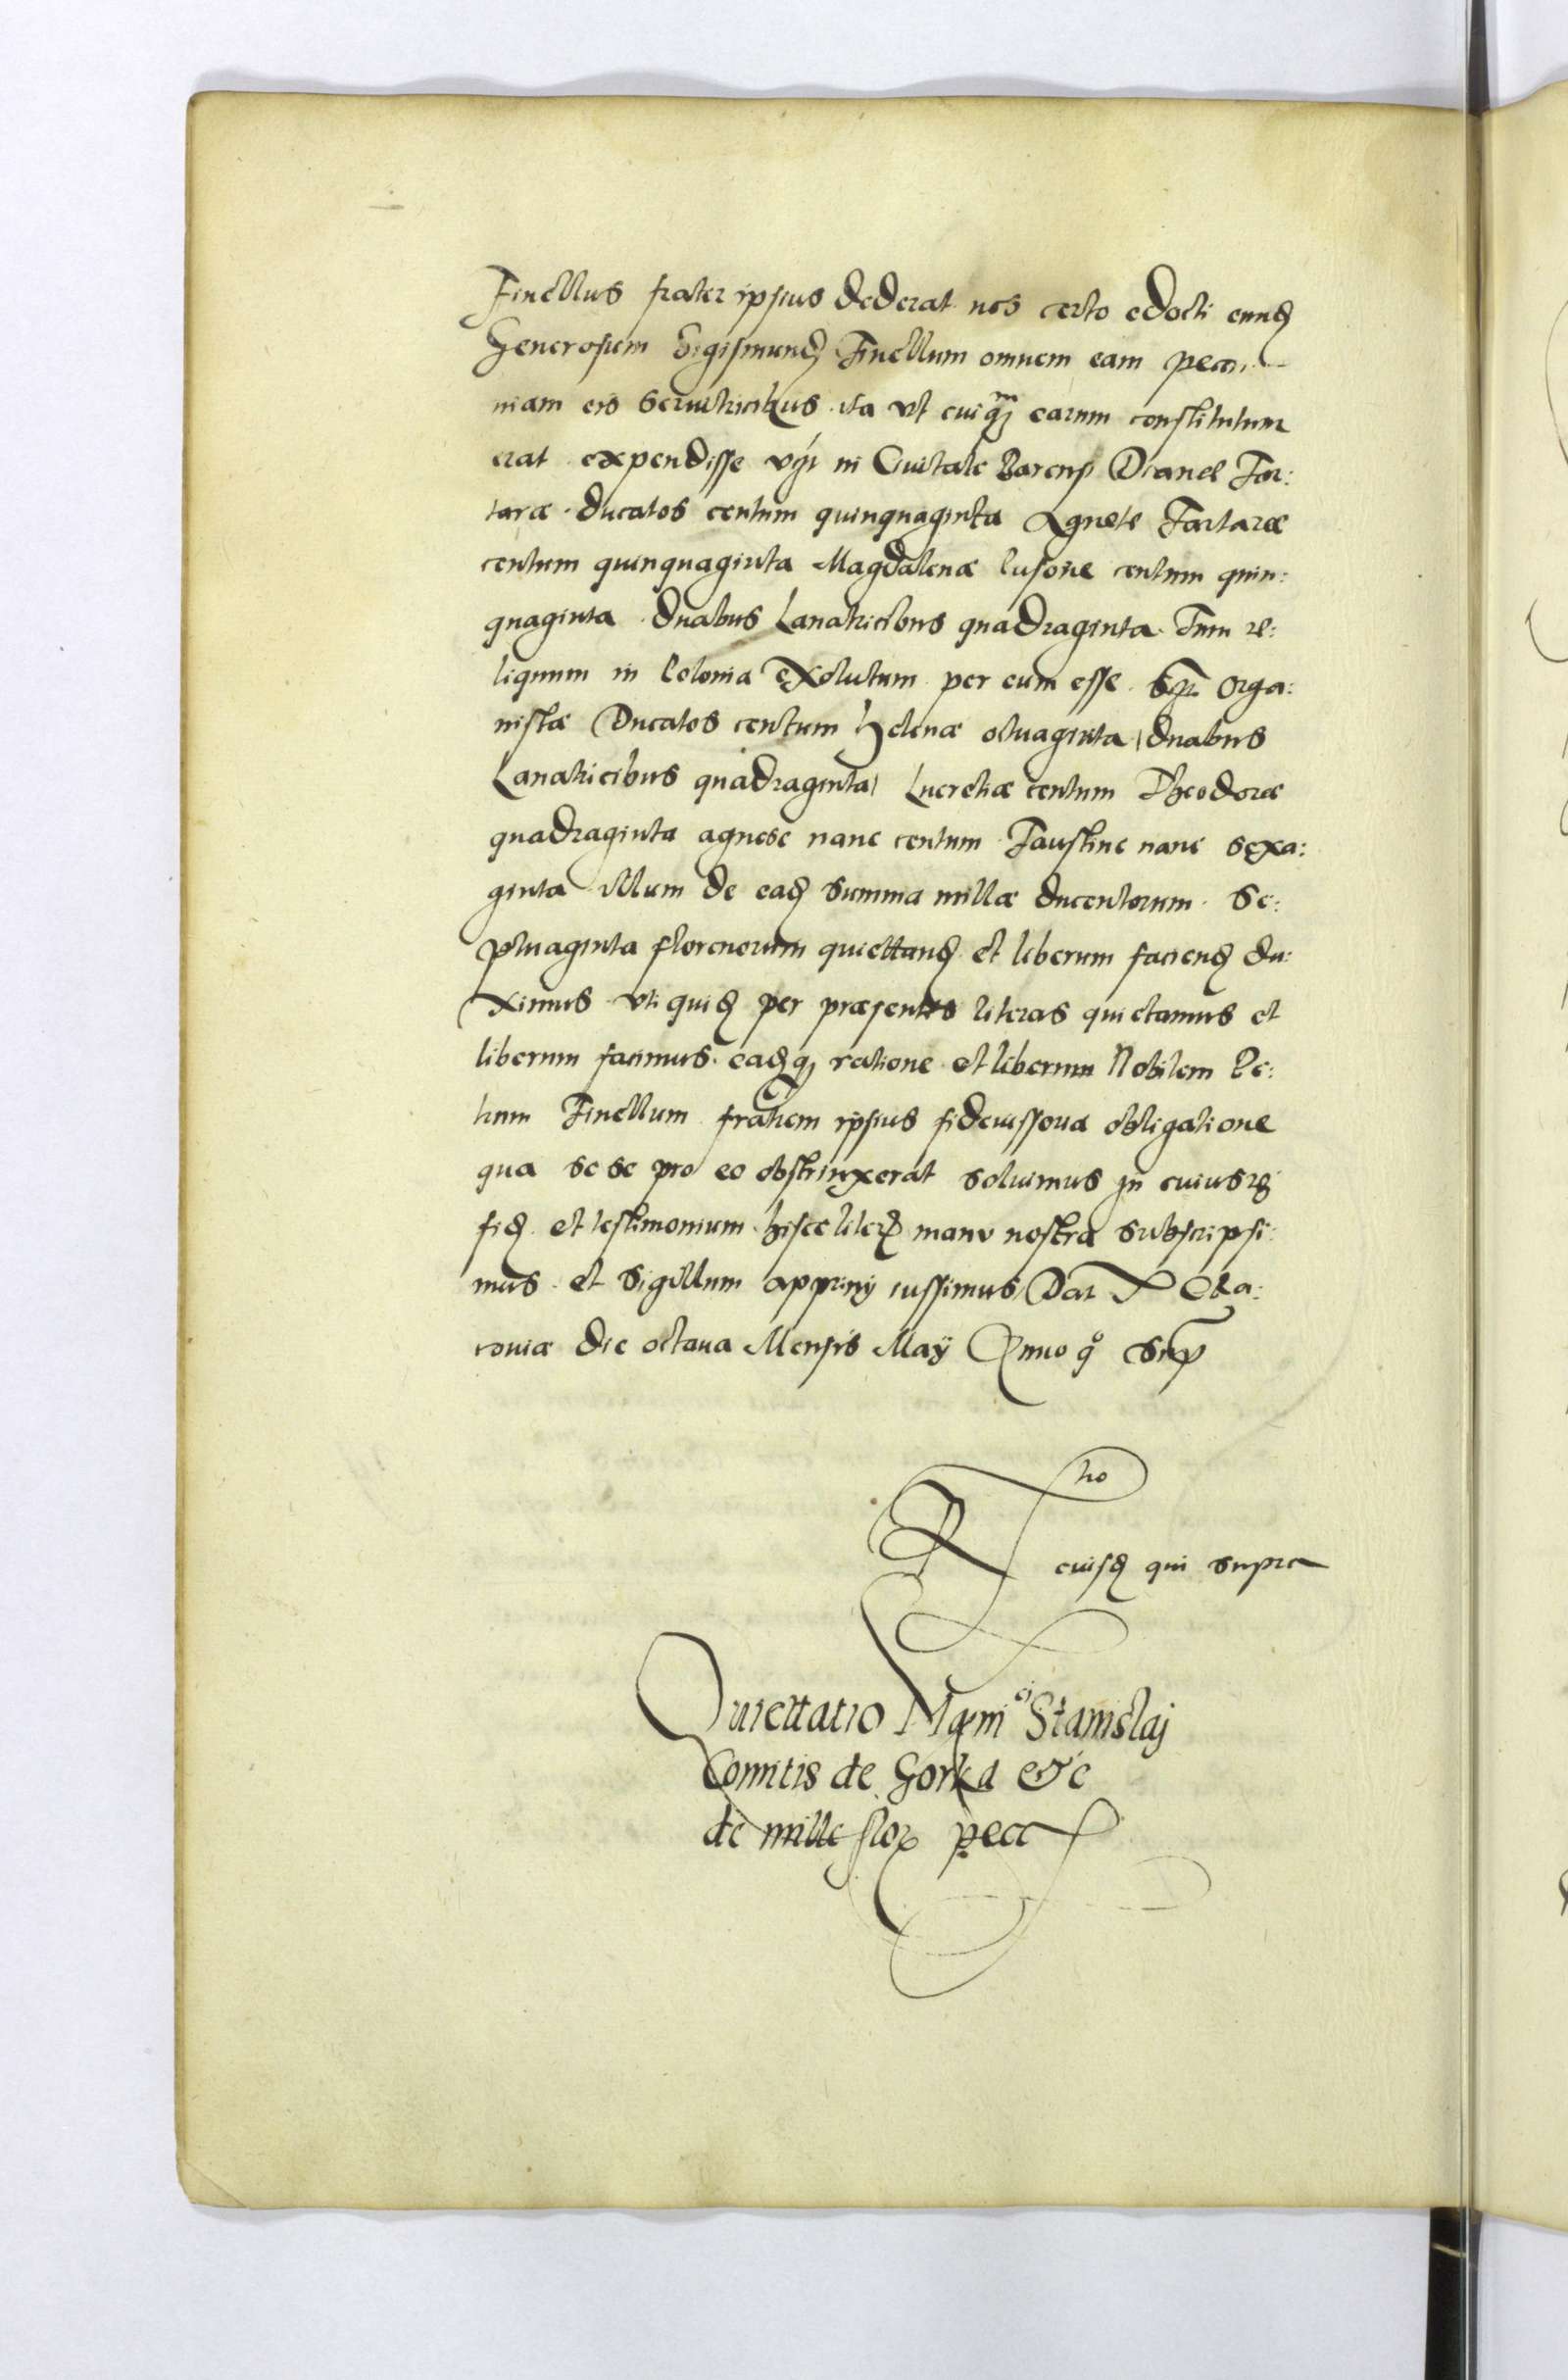 Finellus frater ipsius dederat nos certo edocti eund
Generosum Sigismund Finellum omnem eam pecu
niam eis servitricibus ita ut cuiqm earum constitutum
erat expendisse vgr in Civitate Barens Dianae Tar:
tarae ducatos centum quinquaginta Agnete Tartarae
centum quinquaginta Magdalenae Cusone centum quin:
quaginta duabus Lanatricibus quadraginta. Tum re:
liquum in Colonia exolutum per eum esse Orga:
nistae Ducatos centum Helenae octuaginta, duabus
Lanatricibus quadraginta, Lucretiae centum Theodorae
quadraginta agnese nane centum Faustine nane sexa:
ginta illum de ead summa millae ducentorum Se:
ptuaginta florenorum quiettand et liberum faciend du:
ximus uti quid per praesentes literas quietamus et
liberum facimus eadq ratione et liberum Nobilem Pe:
trum Finellum fratrem ipsius fideiussoria obligatione
qua sese pro eo obstrinxerat solvimus In cuius rei
fid et testimonium hisce liter manu nostra subscripsi:
mus et Sigillum apprimj iussimus Dat Cra:
coviae die octava Mensis Maÿ Anno qo Sup
Rtio
eiusd qui supra
Quiettatio Magnici Stanislaj
Comitis de Gorka etc
de mille flor pecc